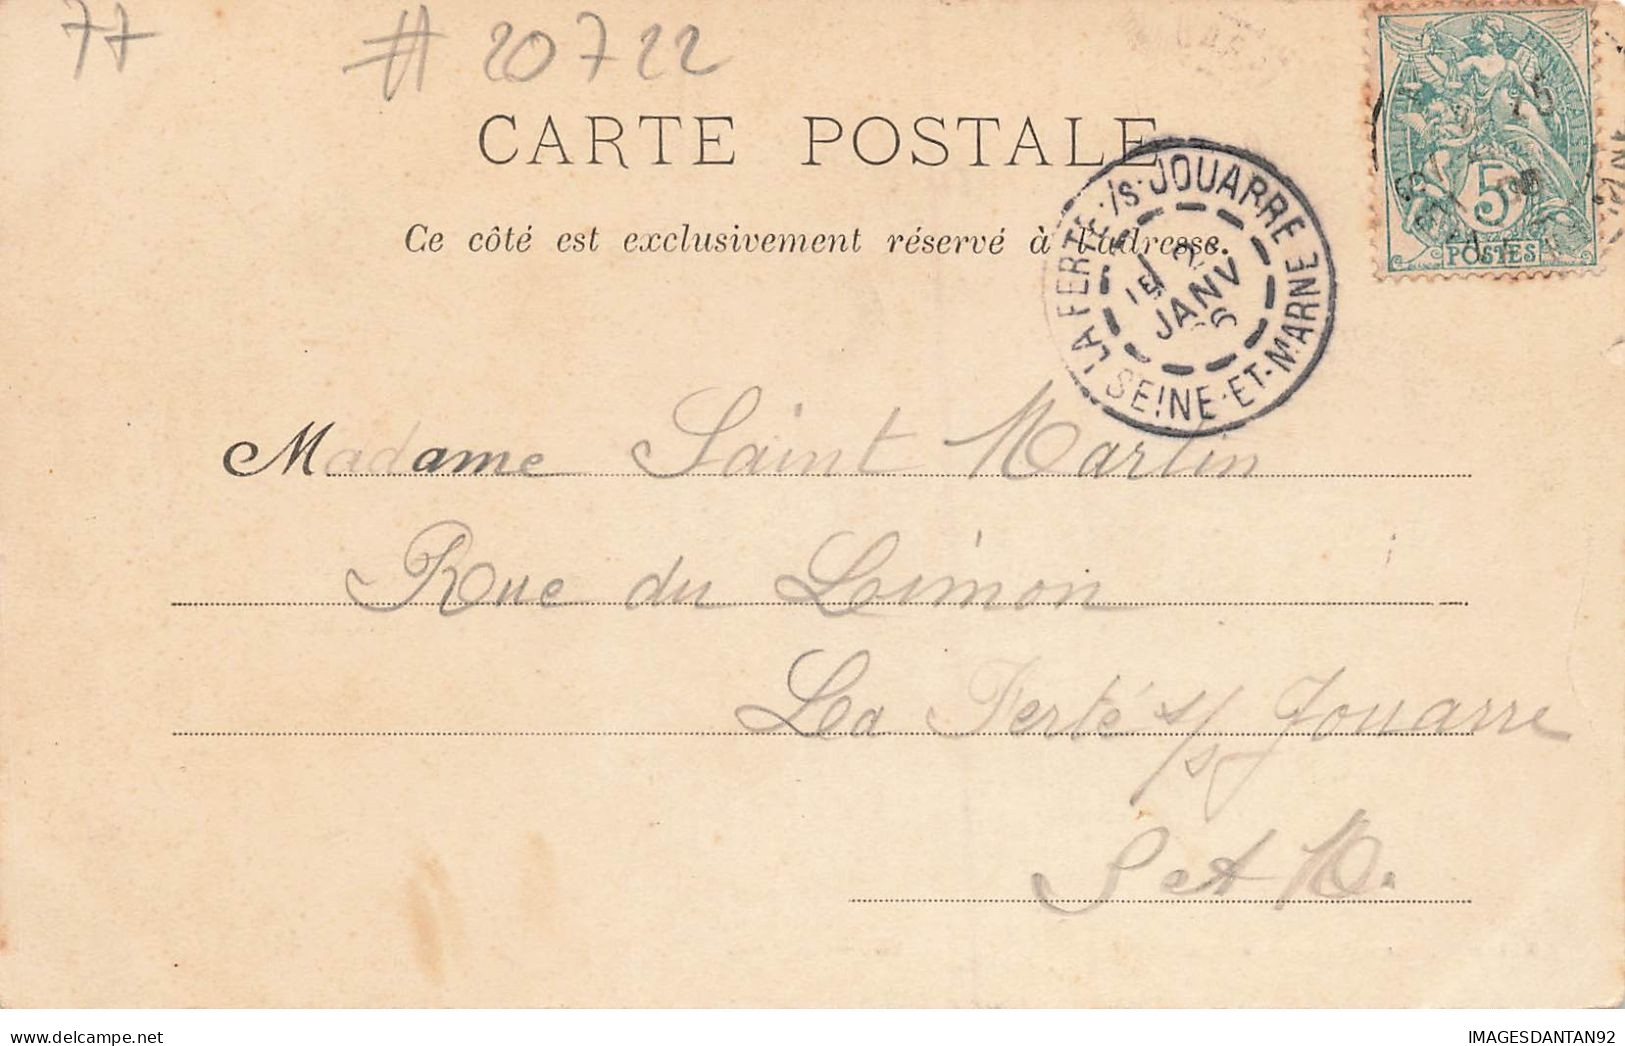 77 # 20722
CARTE POSTALE
Ce côté est exclusivement réservé à l'adresse.
LA FERTE-/S-JOUARRE
JANV
SEINE-ET-MARNE
5
POSTES
Madame Saint Martin
Rue du Limon
La Ferté s/s Jouarre
S et M.
www.delcampe.net
IMAGESDANTAN92